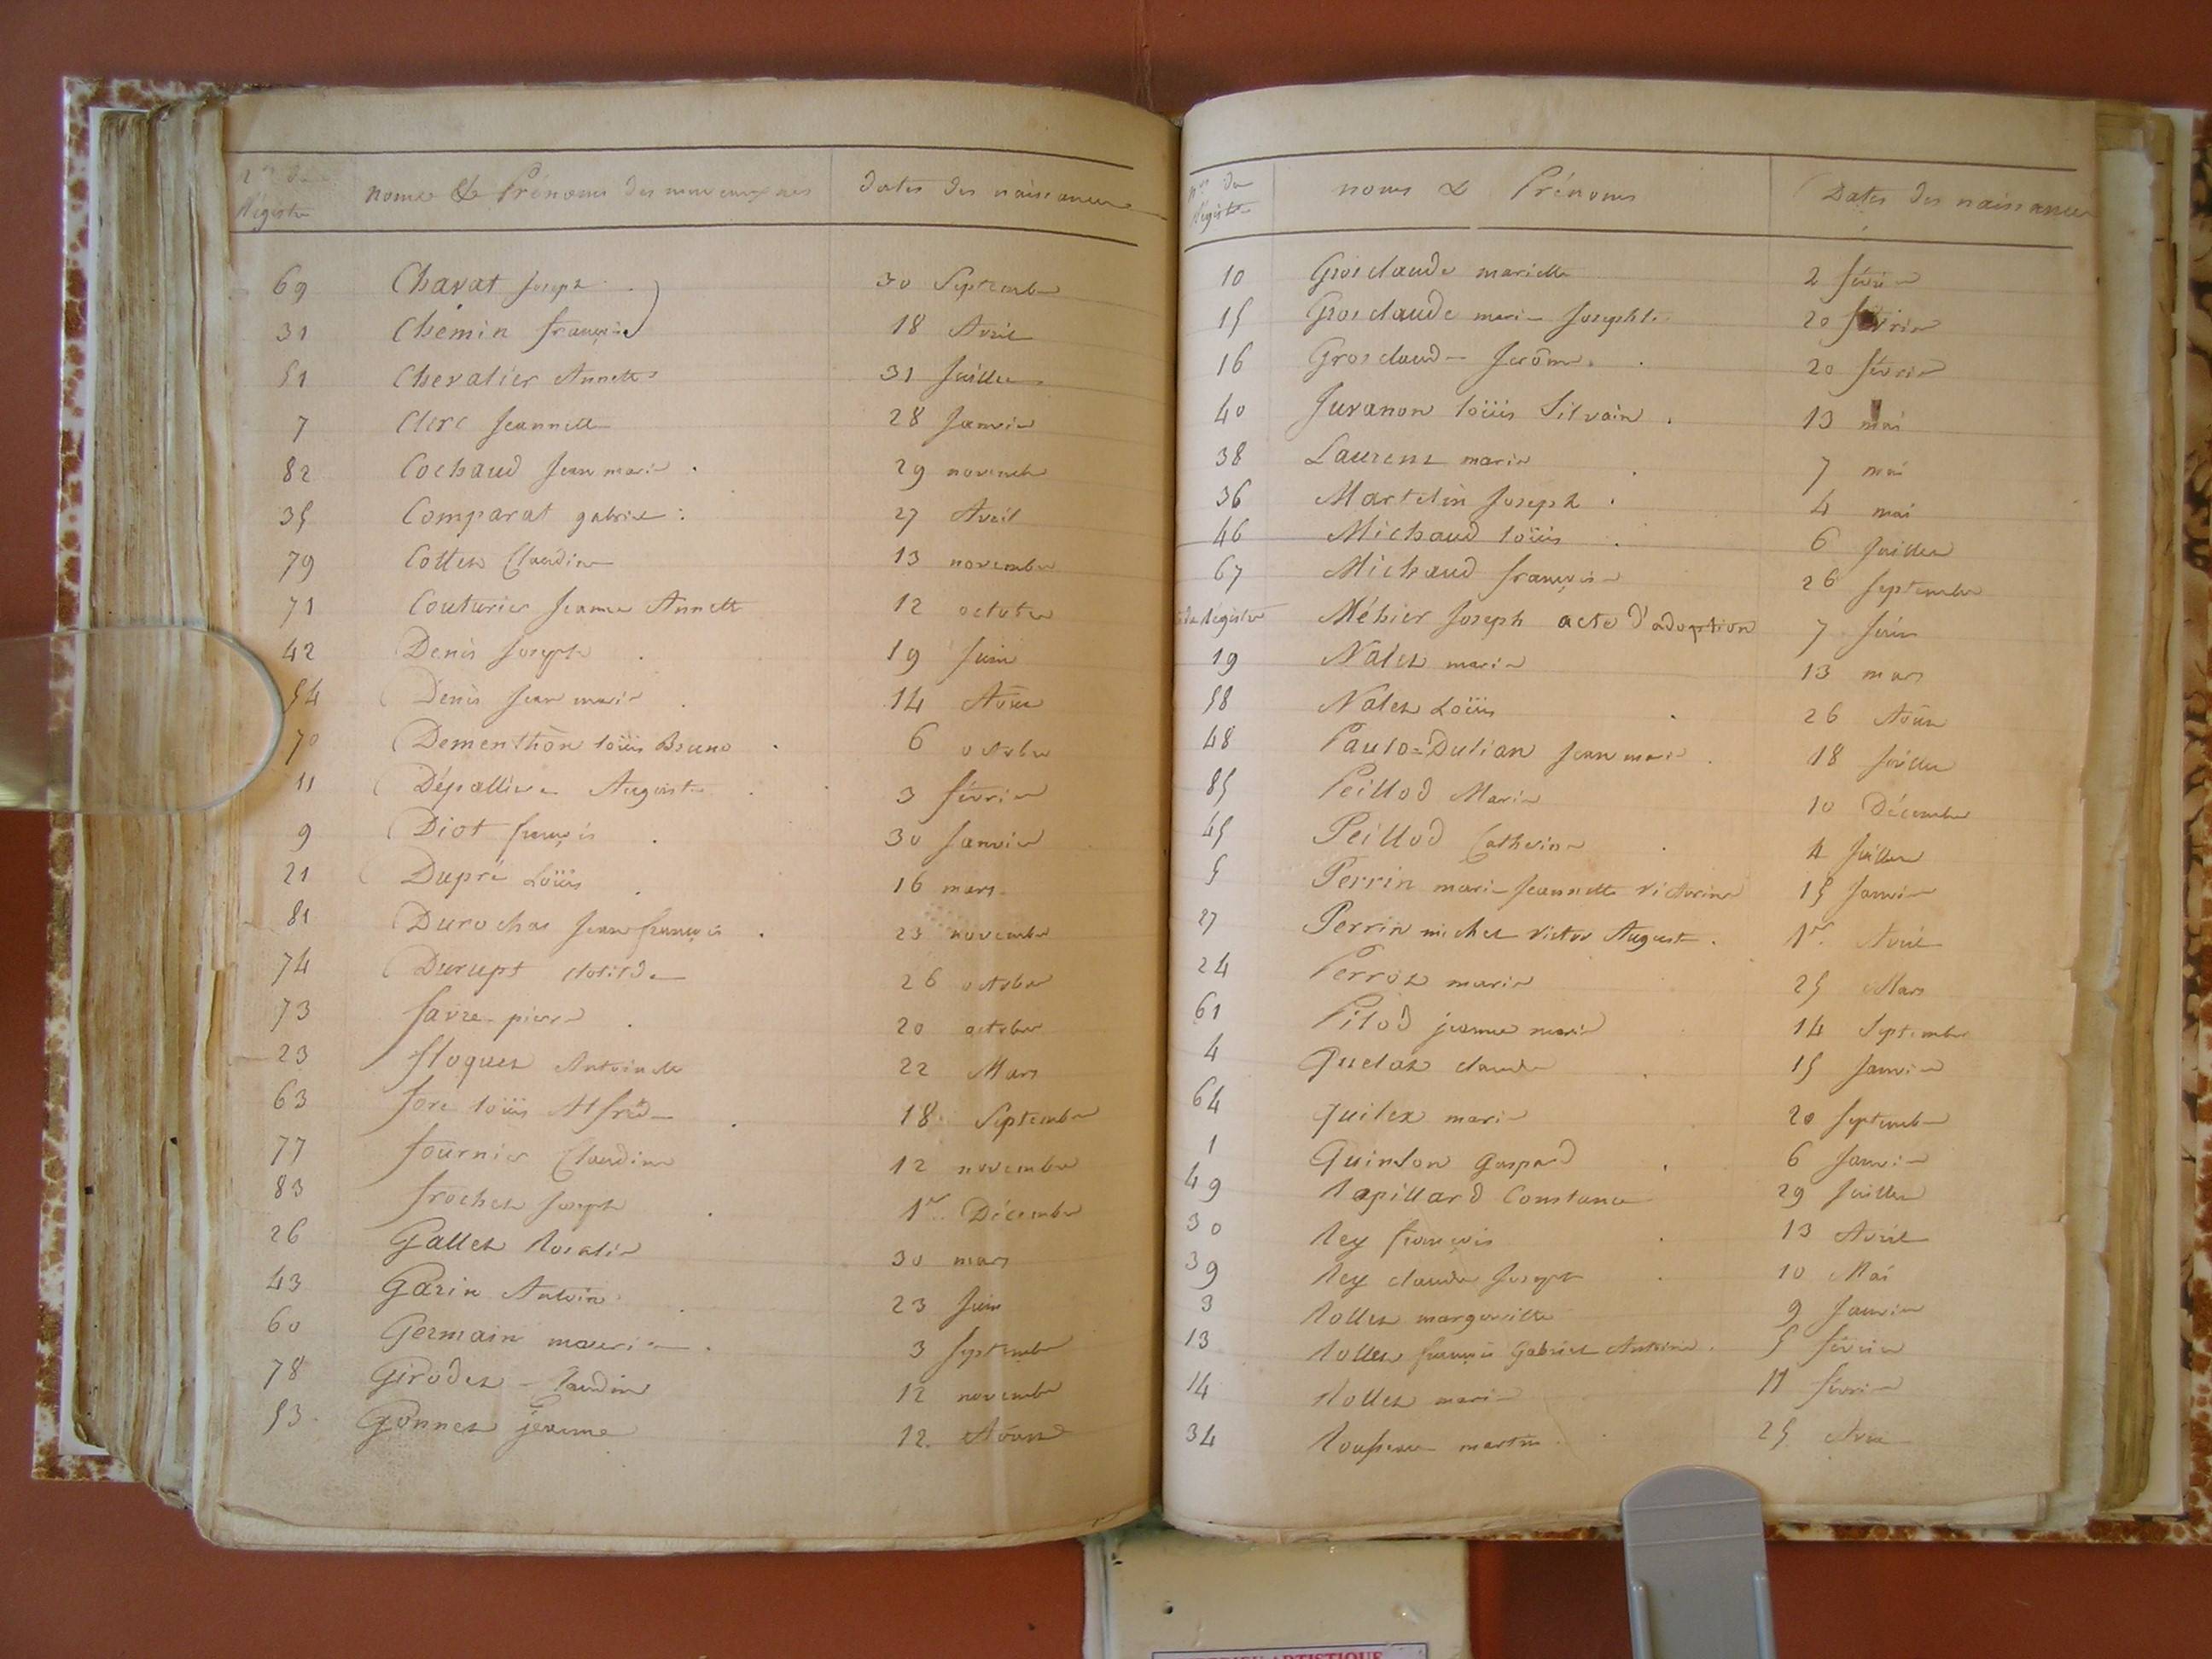 Nos du Régistre noms & Prénoms des nouveaux nés dates des naissances
69 Chavat Joseph 30 Septembre
31 Chemin françois 18 Avril
51 Chevalier Annette 31 Juillet
7 Clerc Jeannette 28 Janvier
82 Cochaud Jean marie 29 novembre
35 Comparat gabriel 27 Avril
79 Collet Claudine 13 novembre
71 Couturier Jeanne Annette 12 octobre
42 Denis Joseph 19 Juin
54 Denis Jean marie 14 Août
70 Dementhon loüis Bruno 6 octobre
11 Dépallière Auguste 3 février
9 Diot françois 30 Janvier
21 Dupré Loüis 16 mars
81 Durochas Jean françois 23 novembre
74 Durupt clotilde 26 octobre
73 favre pierre 20 octobre
23 floquet Antoinette 22 Mars
63 fore loüis Alfred 18 Septembre
77 fournier Claudine 12 novembre
83 frochet Joseph 1er Décembre
26 Gallet Rosalie 30 mars
43 Garin Antoine 23 Juin
60 Germain maurice 3 Septembre
78 Girodet Claudine 12 novembre
53 Gonnet jeanne 12 Aoust
Nos du Régistre noms & Prénoms Dates des naissances
10 Grosclaude mariette 2 février
15 Grosclaude marie Josephte 20 février
16 Grosclaude Jerôme 20 février
40 Juvanon loüis Silvain 13 mai
38 Laurent marie 7 mai
36 Martelin Joseph 4 mai
46 Michaud loüis 6 Juillet
67 Michaud françoise 26 Septembre
du Régistre Méhier Joseph acte d'adoption 7 Juin
19 Nalet marie 13 mars
58 Nalet Loüis 26 Août
48 Pauto=Dulian Jean marie 18 Juillet
85 Peillod Marie 10 Décembre
45 Peillod Catherine 4 Juillet
5 Perrin marie Jeannette victorine 15 Janvier
27 Perrin michel victor Auguste 1er Avril
24 Perrot marie 25 Mars
61 Pilod jeanne marie 14 Septembre
4 Quelat claude 15 Janvier
64 Quilet marie 20 Septembre
1 Quinson Gaspard 6 Janvier
49 Rapillard Constance 29 Juillet
30 Rey françois 13 Avril
39 Rey claude Joseph 10 Mai
3 Rollet margueritte 9 Janvier
13 Rollet françois Gabriel Antoine 5 février
14 Rollet marie 11 février
34 Rousseau martin 25 Avril
ARTISTIQUE